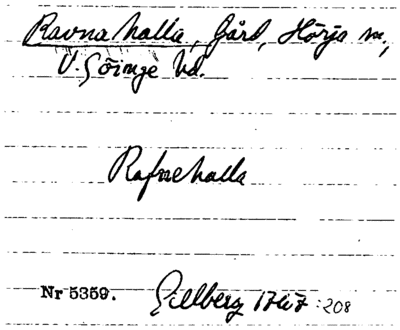 Ravnahalla, Gård, Hörja sn,
V. Göinge hd.
Rafnehalla
Nr 5359. Gillberg 1767:208